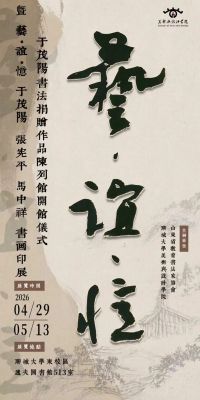 藝·誼·憶
于茂陽書法捐贈作品陳列館開館儀式
暨 藝·誼·憶 于茂陽 張憲平 馬中祥 書畫印展
展覽時間
2026
04/29
05/13
展覽地點
聊城大學東校區
逸夫圖書館513室
主辦單位
山東省散書法家協會
聊城大學美術與設計學院